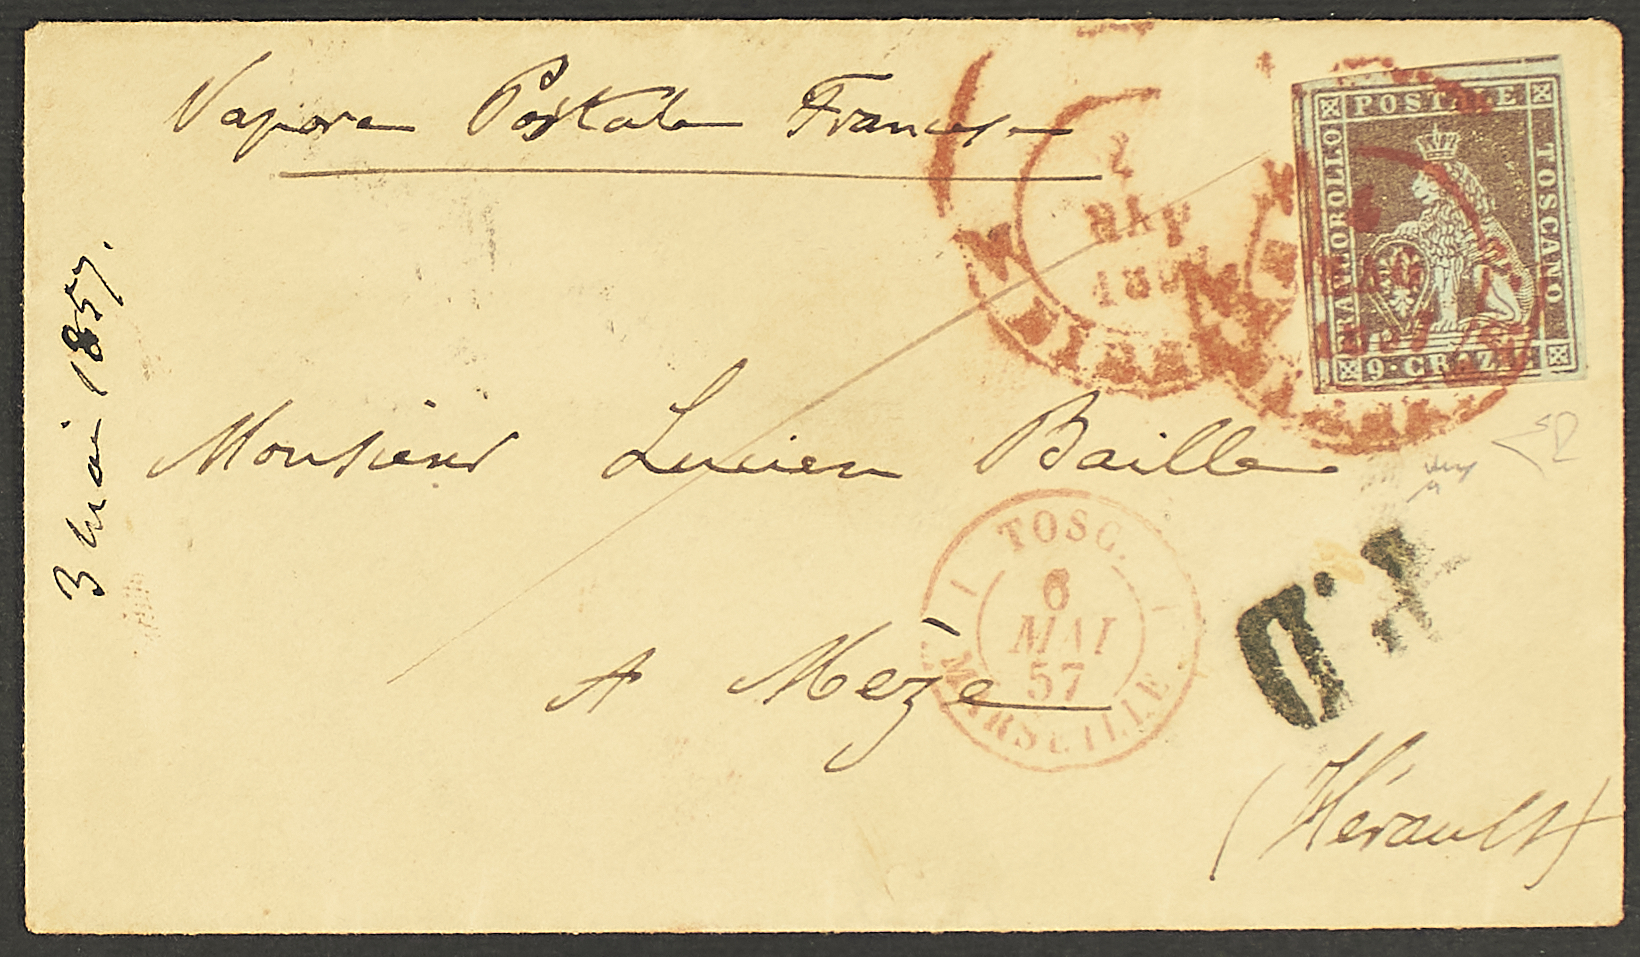 Vapore Postale Francese
POSTALE
FRANCOBOLLO
TOSCANO
9. CRAZIE
2
MAG
1857
3 Mai 1857.
Monsieur Lucien Baille
TOSC.
6
MAI
57
MARSEILLE
P.D
A Mèze
(Hérault)